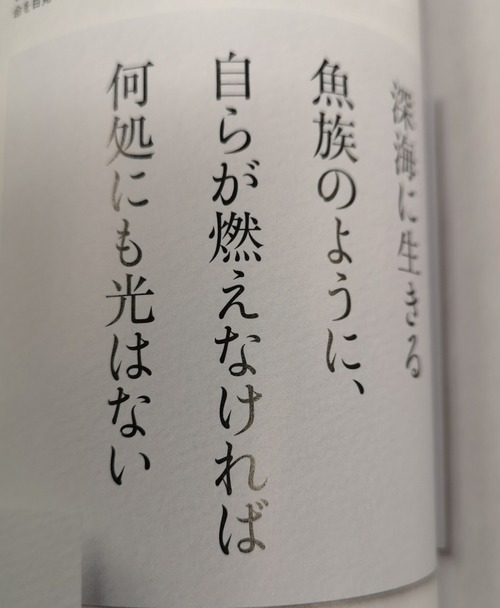 深海に生きる
魚族のように、
自らが燃えなければ
何処にも光はない